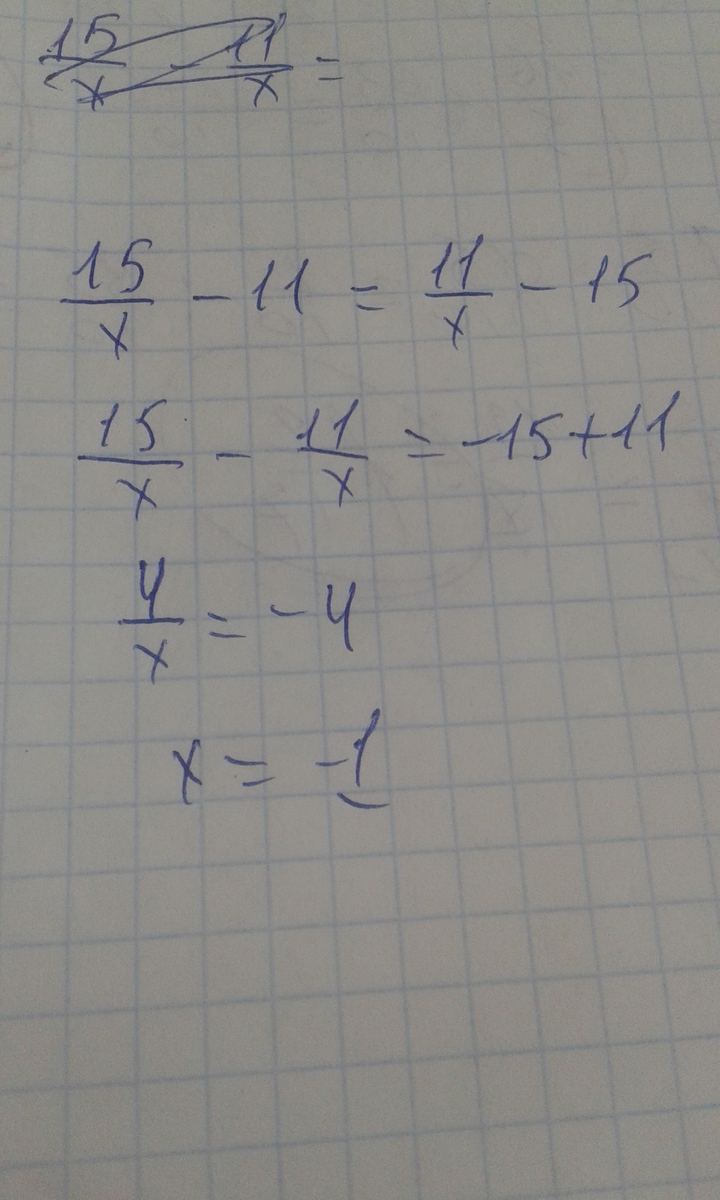 15/x - 11/x =
15/x - 11 = 11/x - 15
15/x - 11/x = -15+11
4/x = -4
x = -1